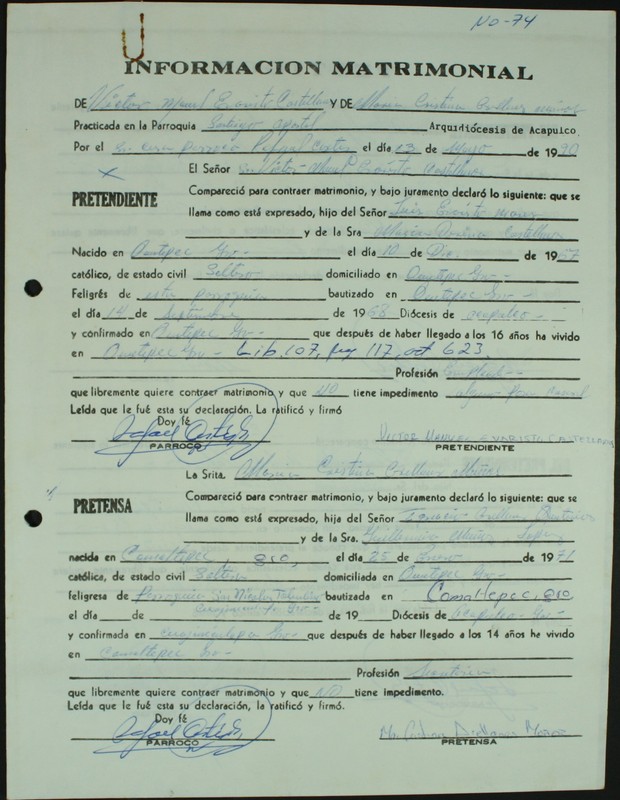 NO-74
INFORMACION MATRIMONIAL
DE Victor Manuel Evaristo Castellanos Y DE Maria Cristina Arellanes
Practicada en la Parroquia Santiago Apostol Arquidiócesis de Acapulco.
Por el Sr. Cura Parroco Rafael el día 23 de Marzo de 1990
X El Señor Victor Manuel Evaristo Castellanos
PRETENDIENTE
Compareció para contraer matrimonio, y bajo juramento declaró lo siguiente: que se
llama como está expresado, hijo del Señor Luis Evaristo
y de la Sra. Maria Castellanos
Nacido en Ometepec Gro- el día 10 de Dic. de 1967
católico, de estado civil Soltero domiciliado en Ometepec Gro-
Feligrés de esta parroquia bautizado en Ometepec Gro-
el día 14 de Septiembre de 1968 Diócesis de Acapulco-
y confirmado en Ometepec Gro- que después de haber llegado a los 16 años ha vivido
en Ometepec Gro- Lib. 107, pag 117, act 623.
Profesión Empleado-
que libremente quiere contraer matrimonio y que NO tiene impedimento
Leída que le fué esta su declaración. La ratificó y firmó
Doy fé
PARROCO
VICTOR MANUEL EVARISTO CASTELLANOS
PRETENDIENTE
La Srita. Maria Cristina Arellanes
PRETENSA
Compareció para contraer matrimonio, y bajo juramento declaró lo siguiente: que se
llama como está expresado, hijo del Señor
y de la Sra. Guillermina
nacida en Comaltepec, gro, el día 25 de Enero de 1971
católica, de estado civil Soltera domiciliada en Ometepec Gro-
feligresa de Parroquia San Nicolas Tolentino bautizada en Comaltepec, gro
Cuajinicuilapa Gro-
el día de de 19 Diócesis de Acapulco- Gro-
y confirmada en Cuajinicuilapa Gro- que después de haber llegado a los 14 años ha vivido
en Comaltepec Gro-
Profesión
que libremente quiere contraer matrimonio y que NO tiene impedimento.
Leída que le fué esta su declaración, la ratificó y firmó.
Doy fé
PARROCO
PRETENSA